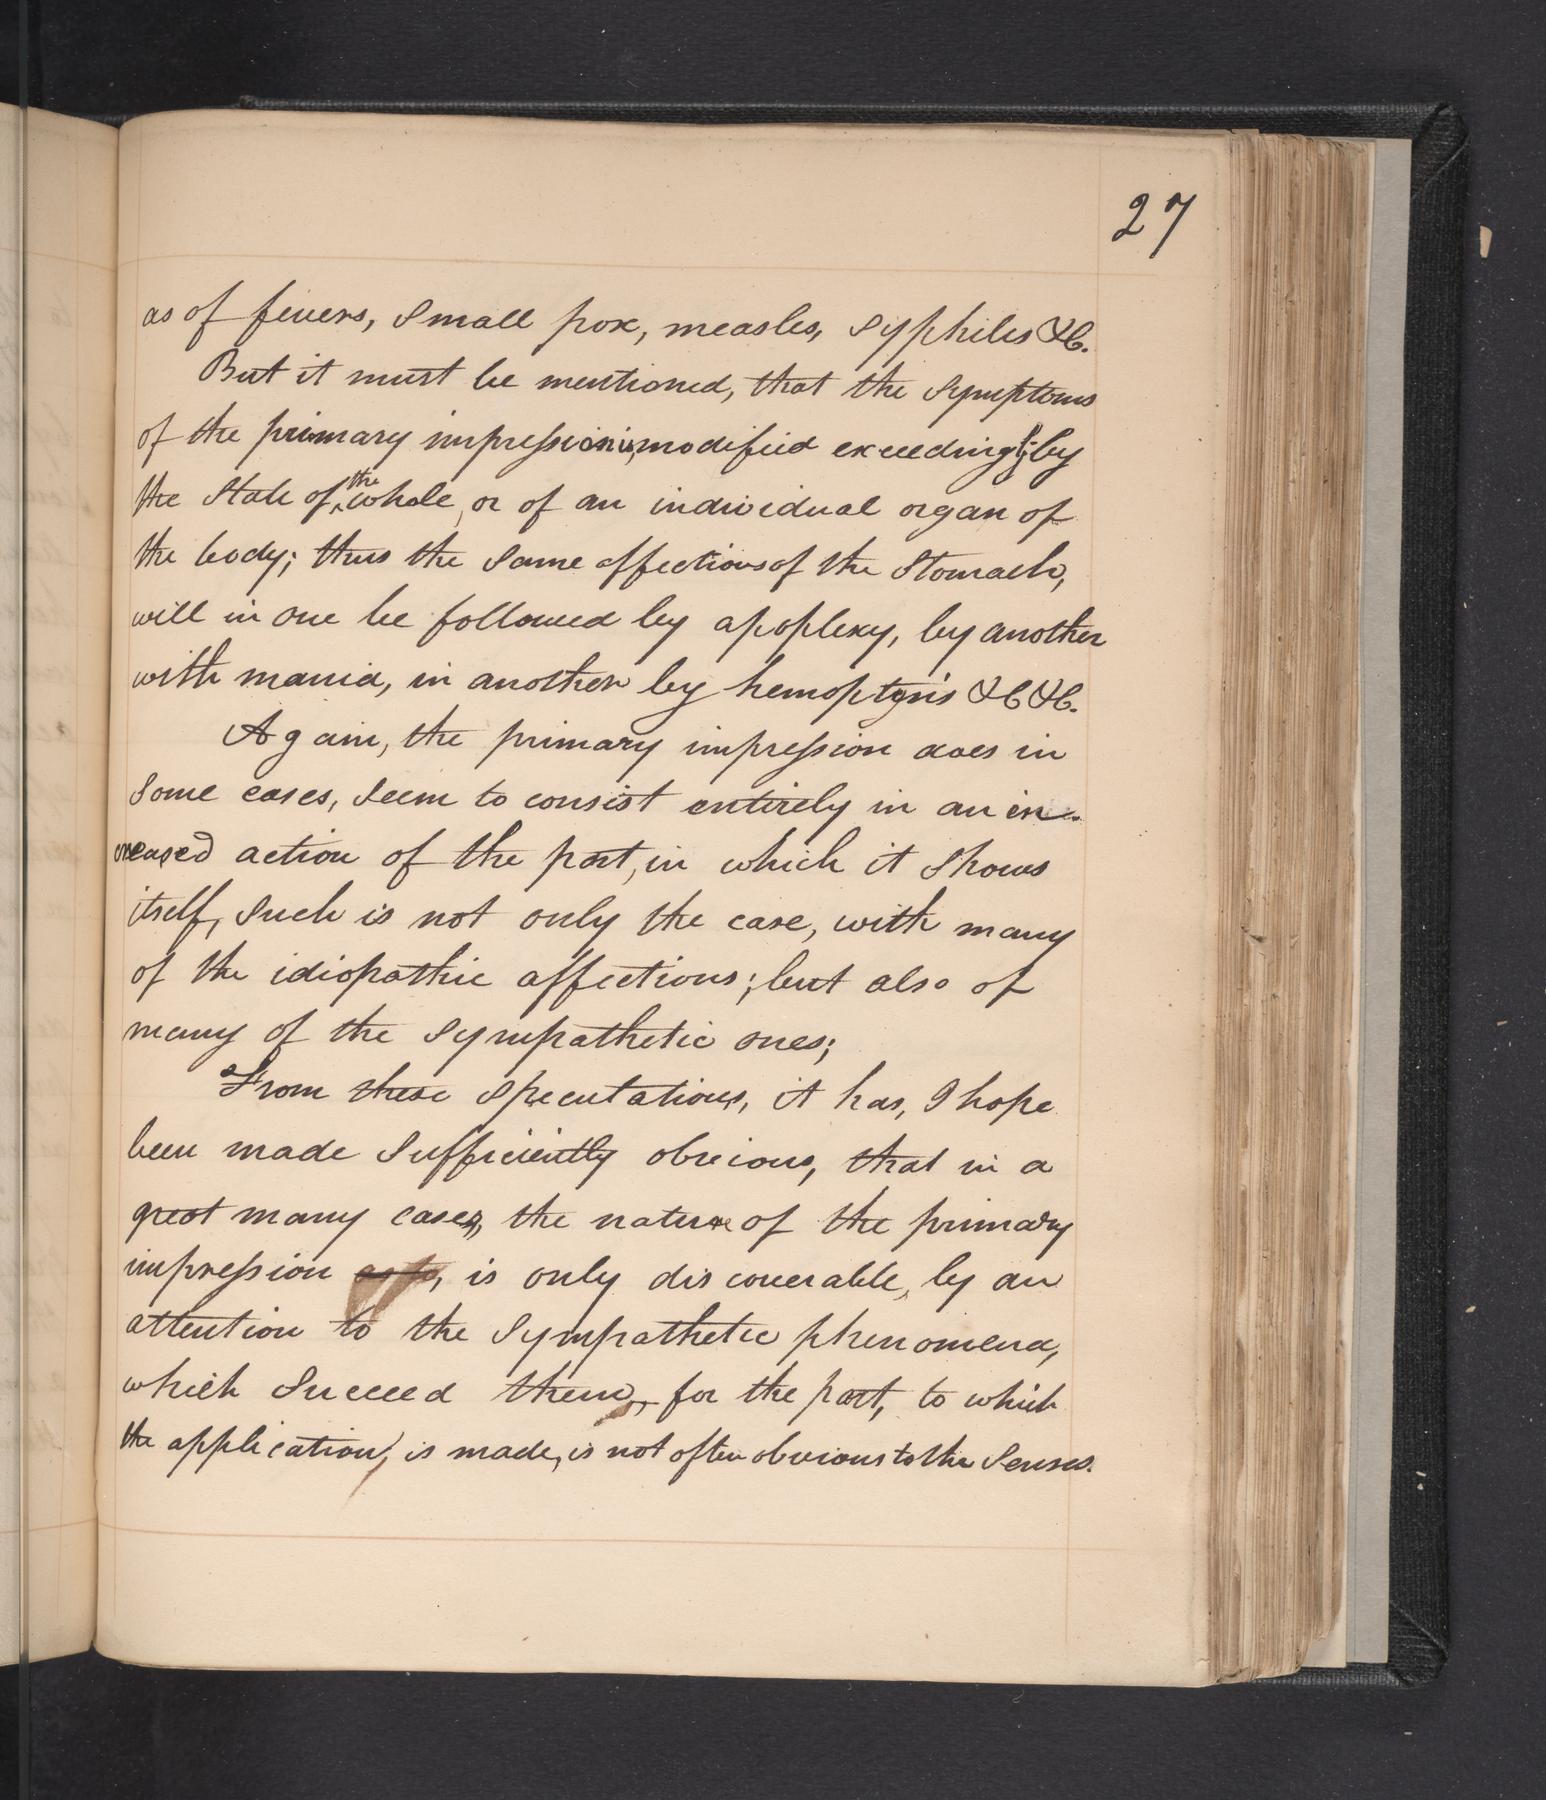 27
as of fevers, small pox, measles, syphilis &c.
But it must be mentioned, that the symptoms
of the primary impression is, modified exceedingly; by
the state of the whole, or of an individual organ of
the body; thus the same affections of the stomach,
will in one be followed by apoplexy, by another
with mania, in another by hemoptysis &c &c.
Again, the primary impression does in
some cases, seem to consist entirely in an in-
creased action of the part, in which it shows
itself, such is not only the case, with many
of the idiopathic affections; but also of
many of the sympathetic ones;
From these speculations, it has, I hope
been made sufficiently obvious, that in a
great many cases, the nature of the primary
impression , is only discoverable, by an
attention to the sympathetic phenomena,
which succeed them, for the part, to which
the application, is made, is not often obvious to the senses.